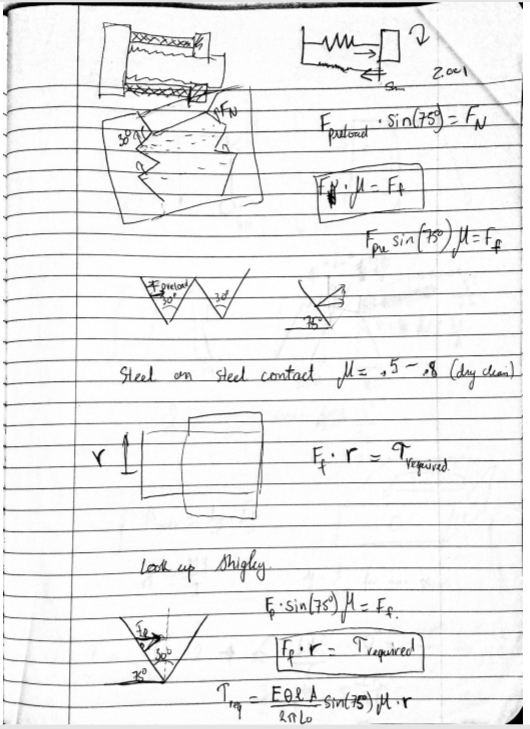 2.001
F_N
30°
F_preload · sin(75°) = F_N
F_N · μ = F_f
F_pre sin(75°) μ = F_f
F_preload
30°
30°
75°
Steel on steel contact μ = .5 - .8 (dry clean)
r
F_f · r = τ_required
Look up Shigley
F_p · sin(75°) μ = F_f.
F_p
30°
75°
F_f · r = τ_required
τ_req = EθlA / 2πL₀ sin(75°) μ · r